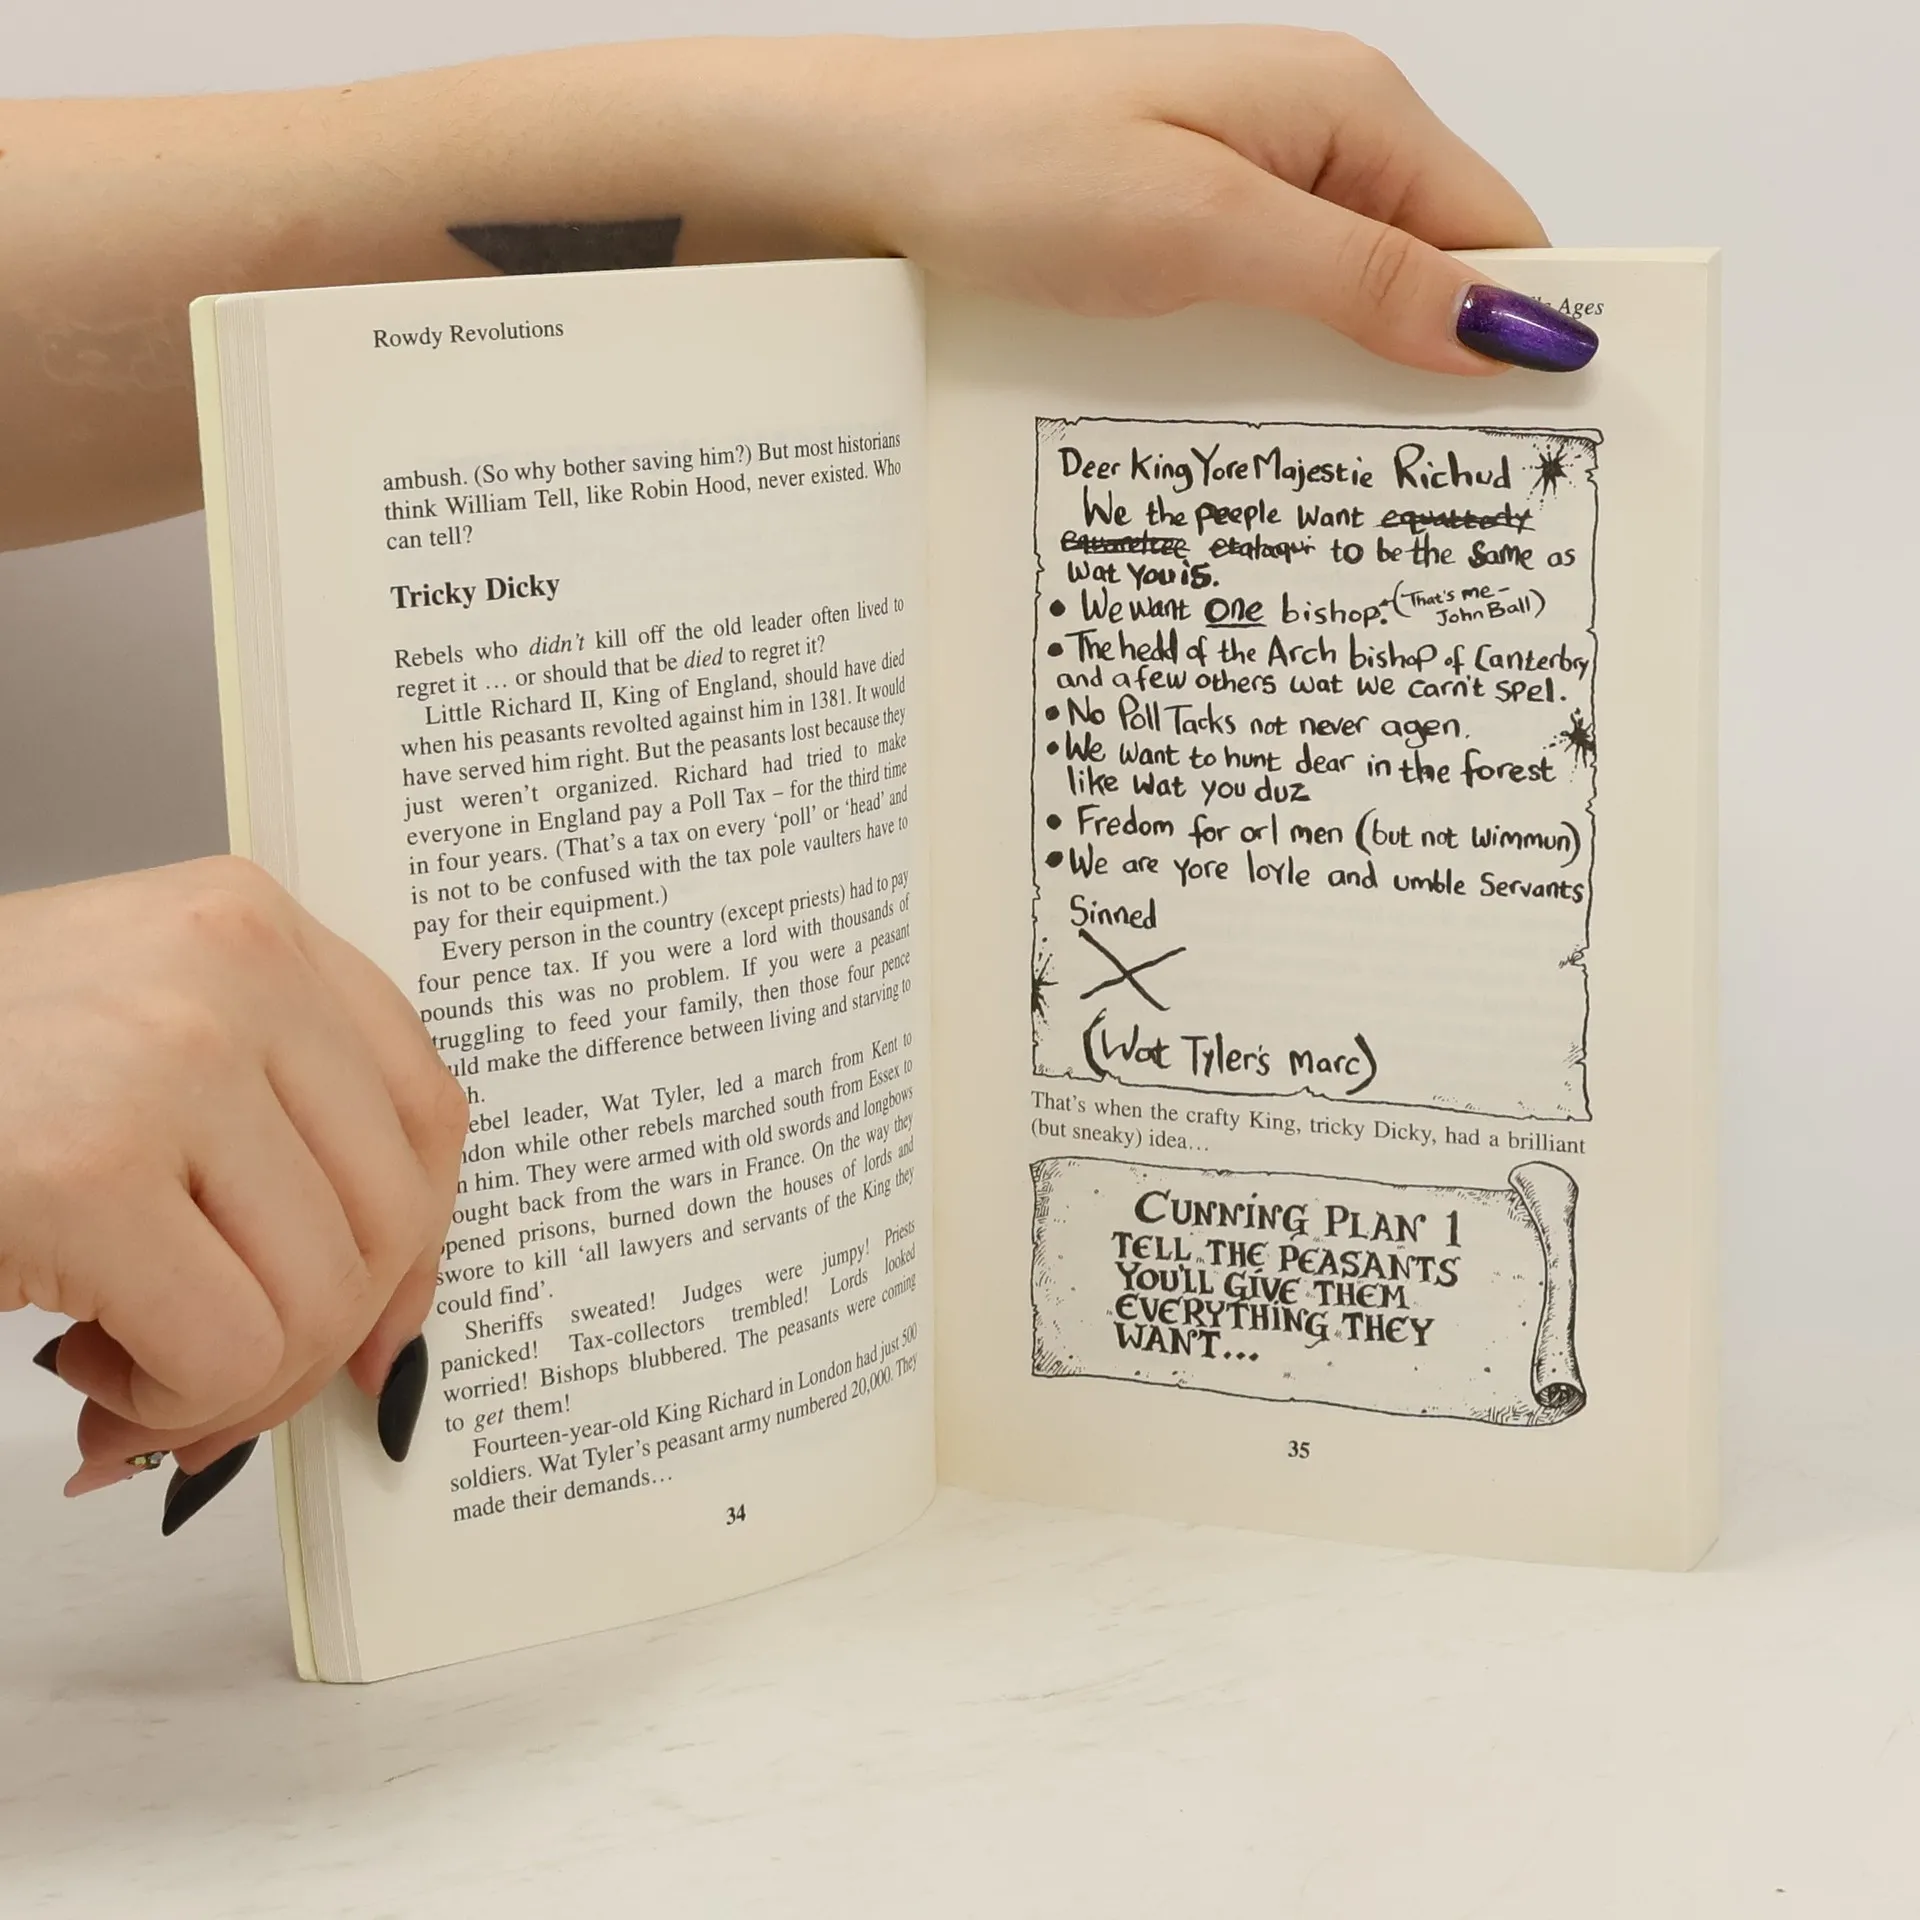 Rowdy Revolutions
ambush. (So why bother saving him?) But most historians
think William Tell, like Robin Hood, never existed. Who
can tell?
Tricky Dicky
Rebels who didn't kill off the old leader often lived to
regret it … or should that be died to regret it?
Little Richard II, King of England, should have died
when his peasants revolted against him in 1381. It would
have served him right. But the peasants lost because they
just weren't organized. Richard had tried to make
everyone in England pay a Poll Tax – for the third time
in four years. (That's a tax on every 'poll' or 'head' and
is not to be confused with the tax pole vaulters have to
pay for their equipment.)
Every person in the country (except priests) had to pay
four pence tax. If you were a lord with thousands of
pounds this was no problem. If you were a peasant
truggling to feed your family, then those four pence
uld make the difference between living and starving to
h.
ebel leader, Wat Tyler, led a march from Kent to
ndon while other rebels marched south from Essex to
n him. They were armed with old swords and longbows
ought back from the wars in France. On the way they
pened prisons, burned down the houses of lords and
swore to kill 'all lawyers and servants of the King they
could find'.
Sheriffs sweated! Judges were jumpy! Priests
panicked! Tax-collectors trembled! Lords looked
worried! Bishops blubbered. The peasants were coming
to get them!
Fourteen-year-old King Richard in London had just 500
soldiers. Wat Tyler's peasant army numbered 20,000. They
made their demands…
34
Ages
Deer King Yore Majestie Richud
We the peeple want
to be the same as
wat you is.
• We want ONE bishop. (That's me –
John Ball)
• The hedd of the Arch bishop of Canterbry
and a few others wat we carn't spel.
• No Poll Tacks not never agen.
• We want to hunt dear in the forest
like wat you duz
• Fredom for orl men (but not wimmun)
• We are yore loyle and umble Servants
Sinned
X
(Wat Tyler's marc)
That's when the crafty King, tricky Dicky, had a brilliant
(but sneaky) idea…
CUNNING PLAN 1
TELL THE PEASANTS
YOU'LL GIVE THEM
EVERYTHING THEY
WANT...
35